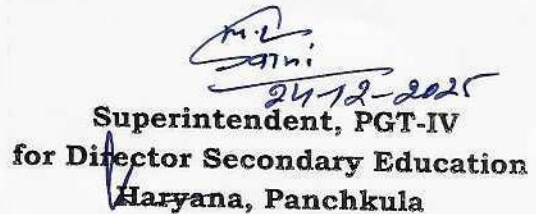 M.L
Saini
24-12-2025
Superintendent, PGT-IV
for Director Secondary Education
Haryana, Panchkula